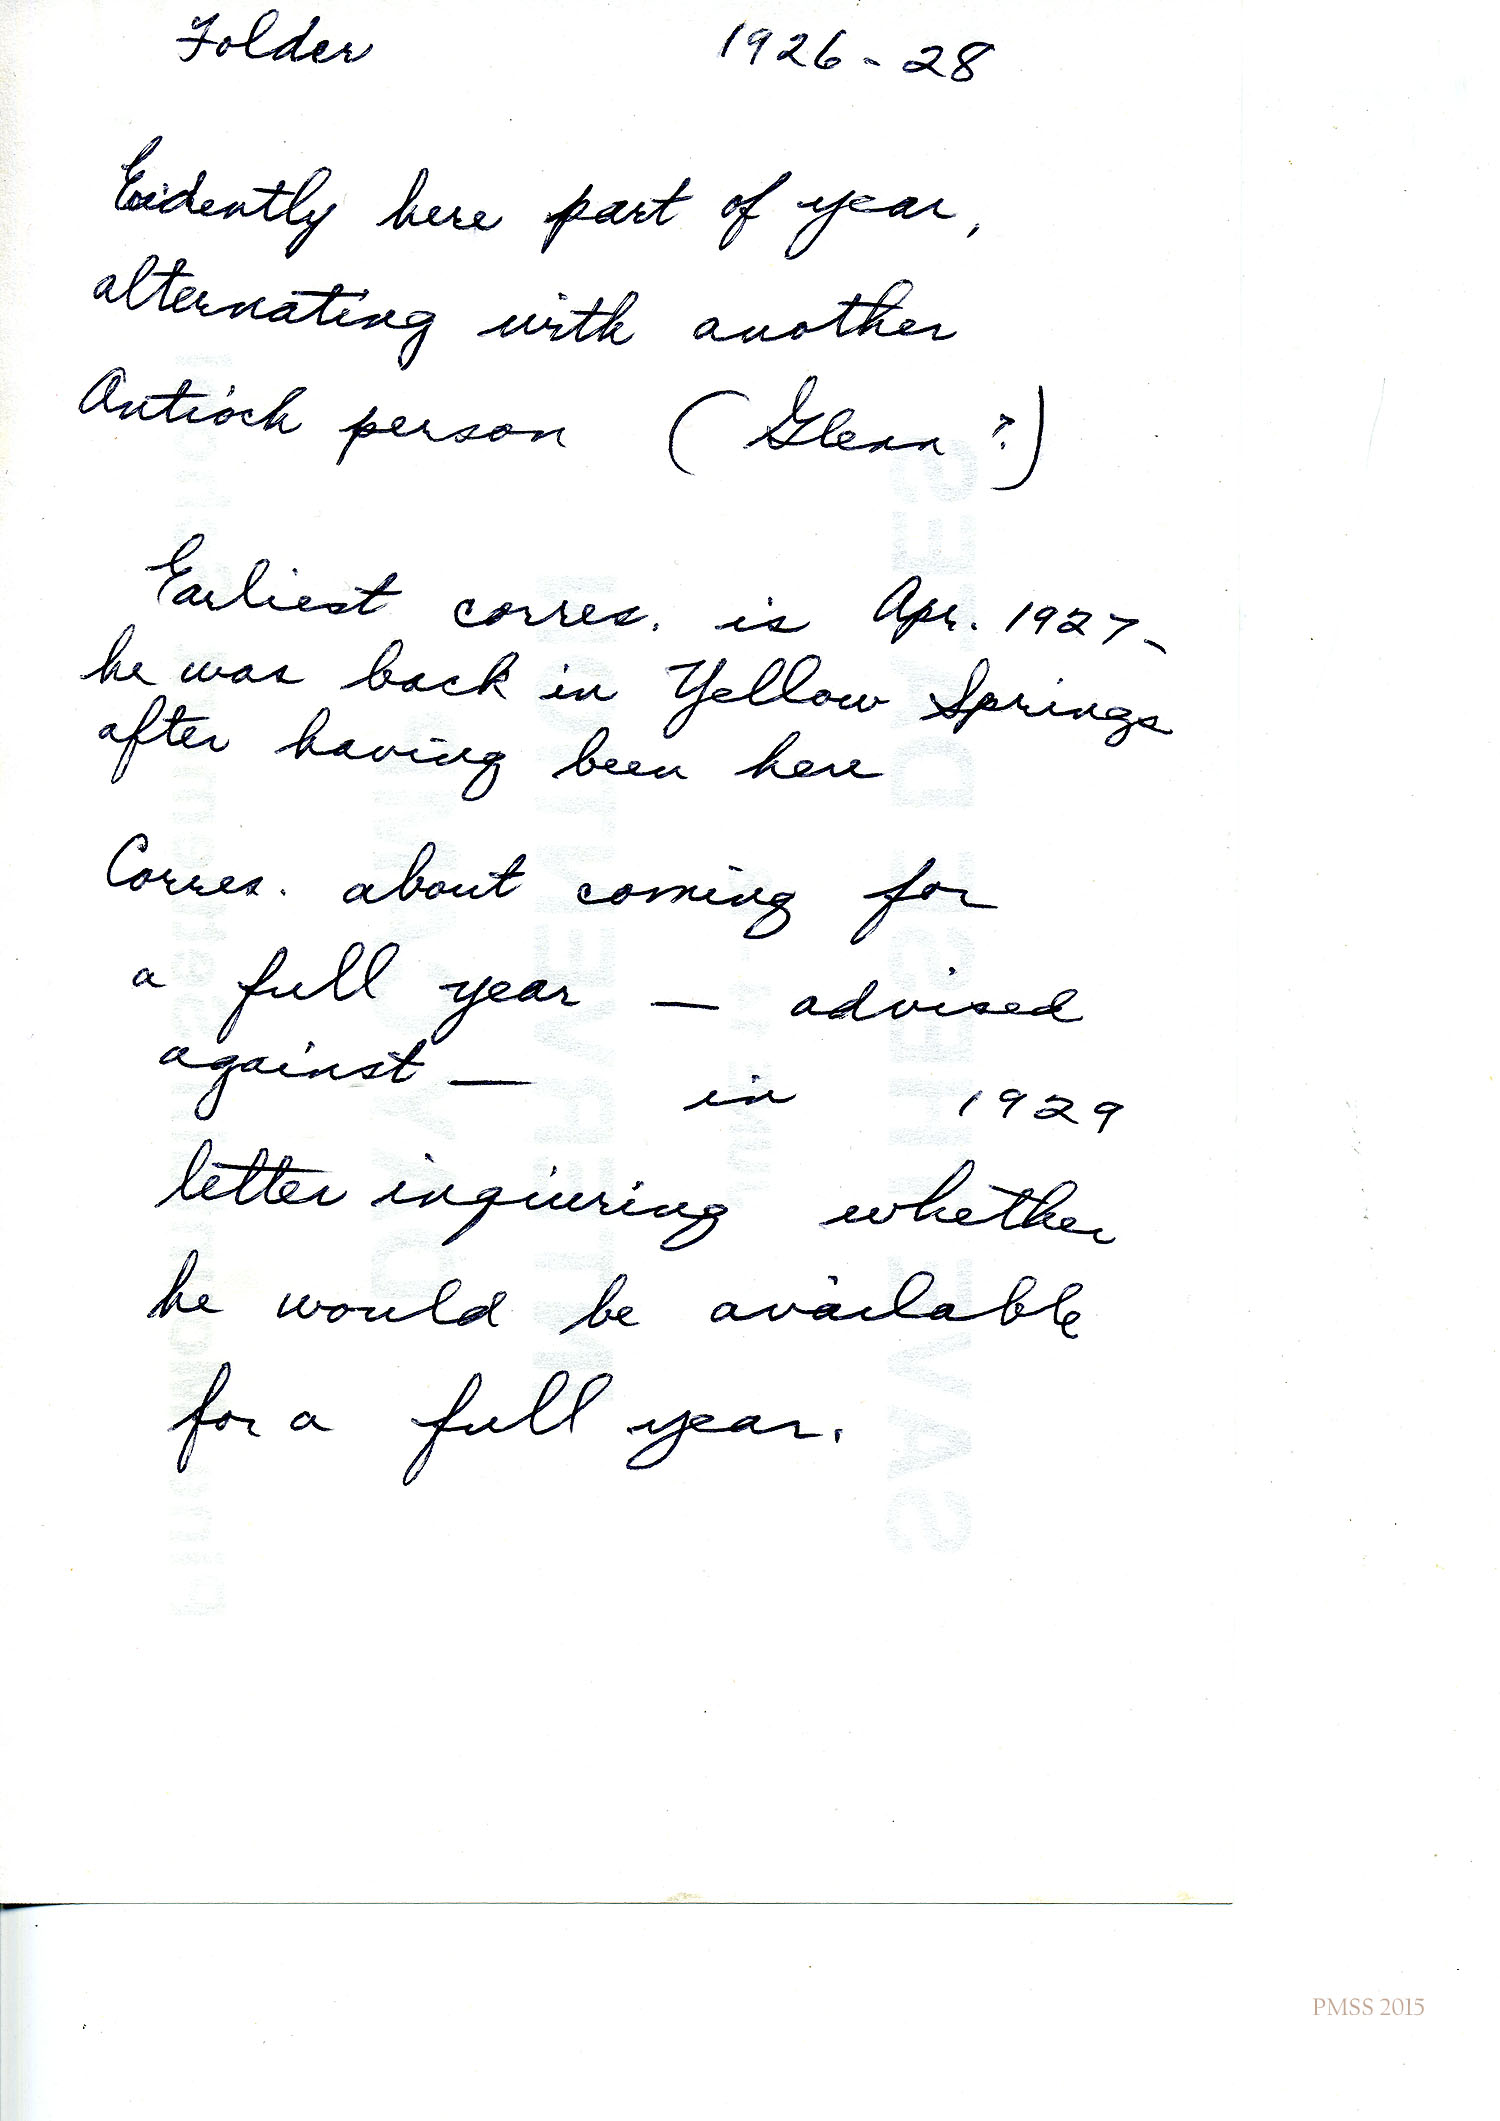 Folder 1926-28
Evidently here part of year,
alternating with another
Antioch person (Glenn?)
Earliest corres. is Apr. 1927-
he was back in Yellow Springs
after having been here
Corres. about coming for
a full year — advised
against — in 1929
letter inquiring whether
he would be available
for a full year.
PMSS 2015